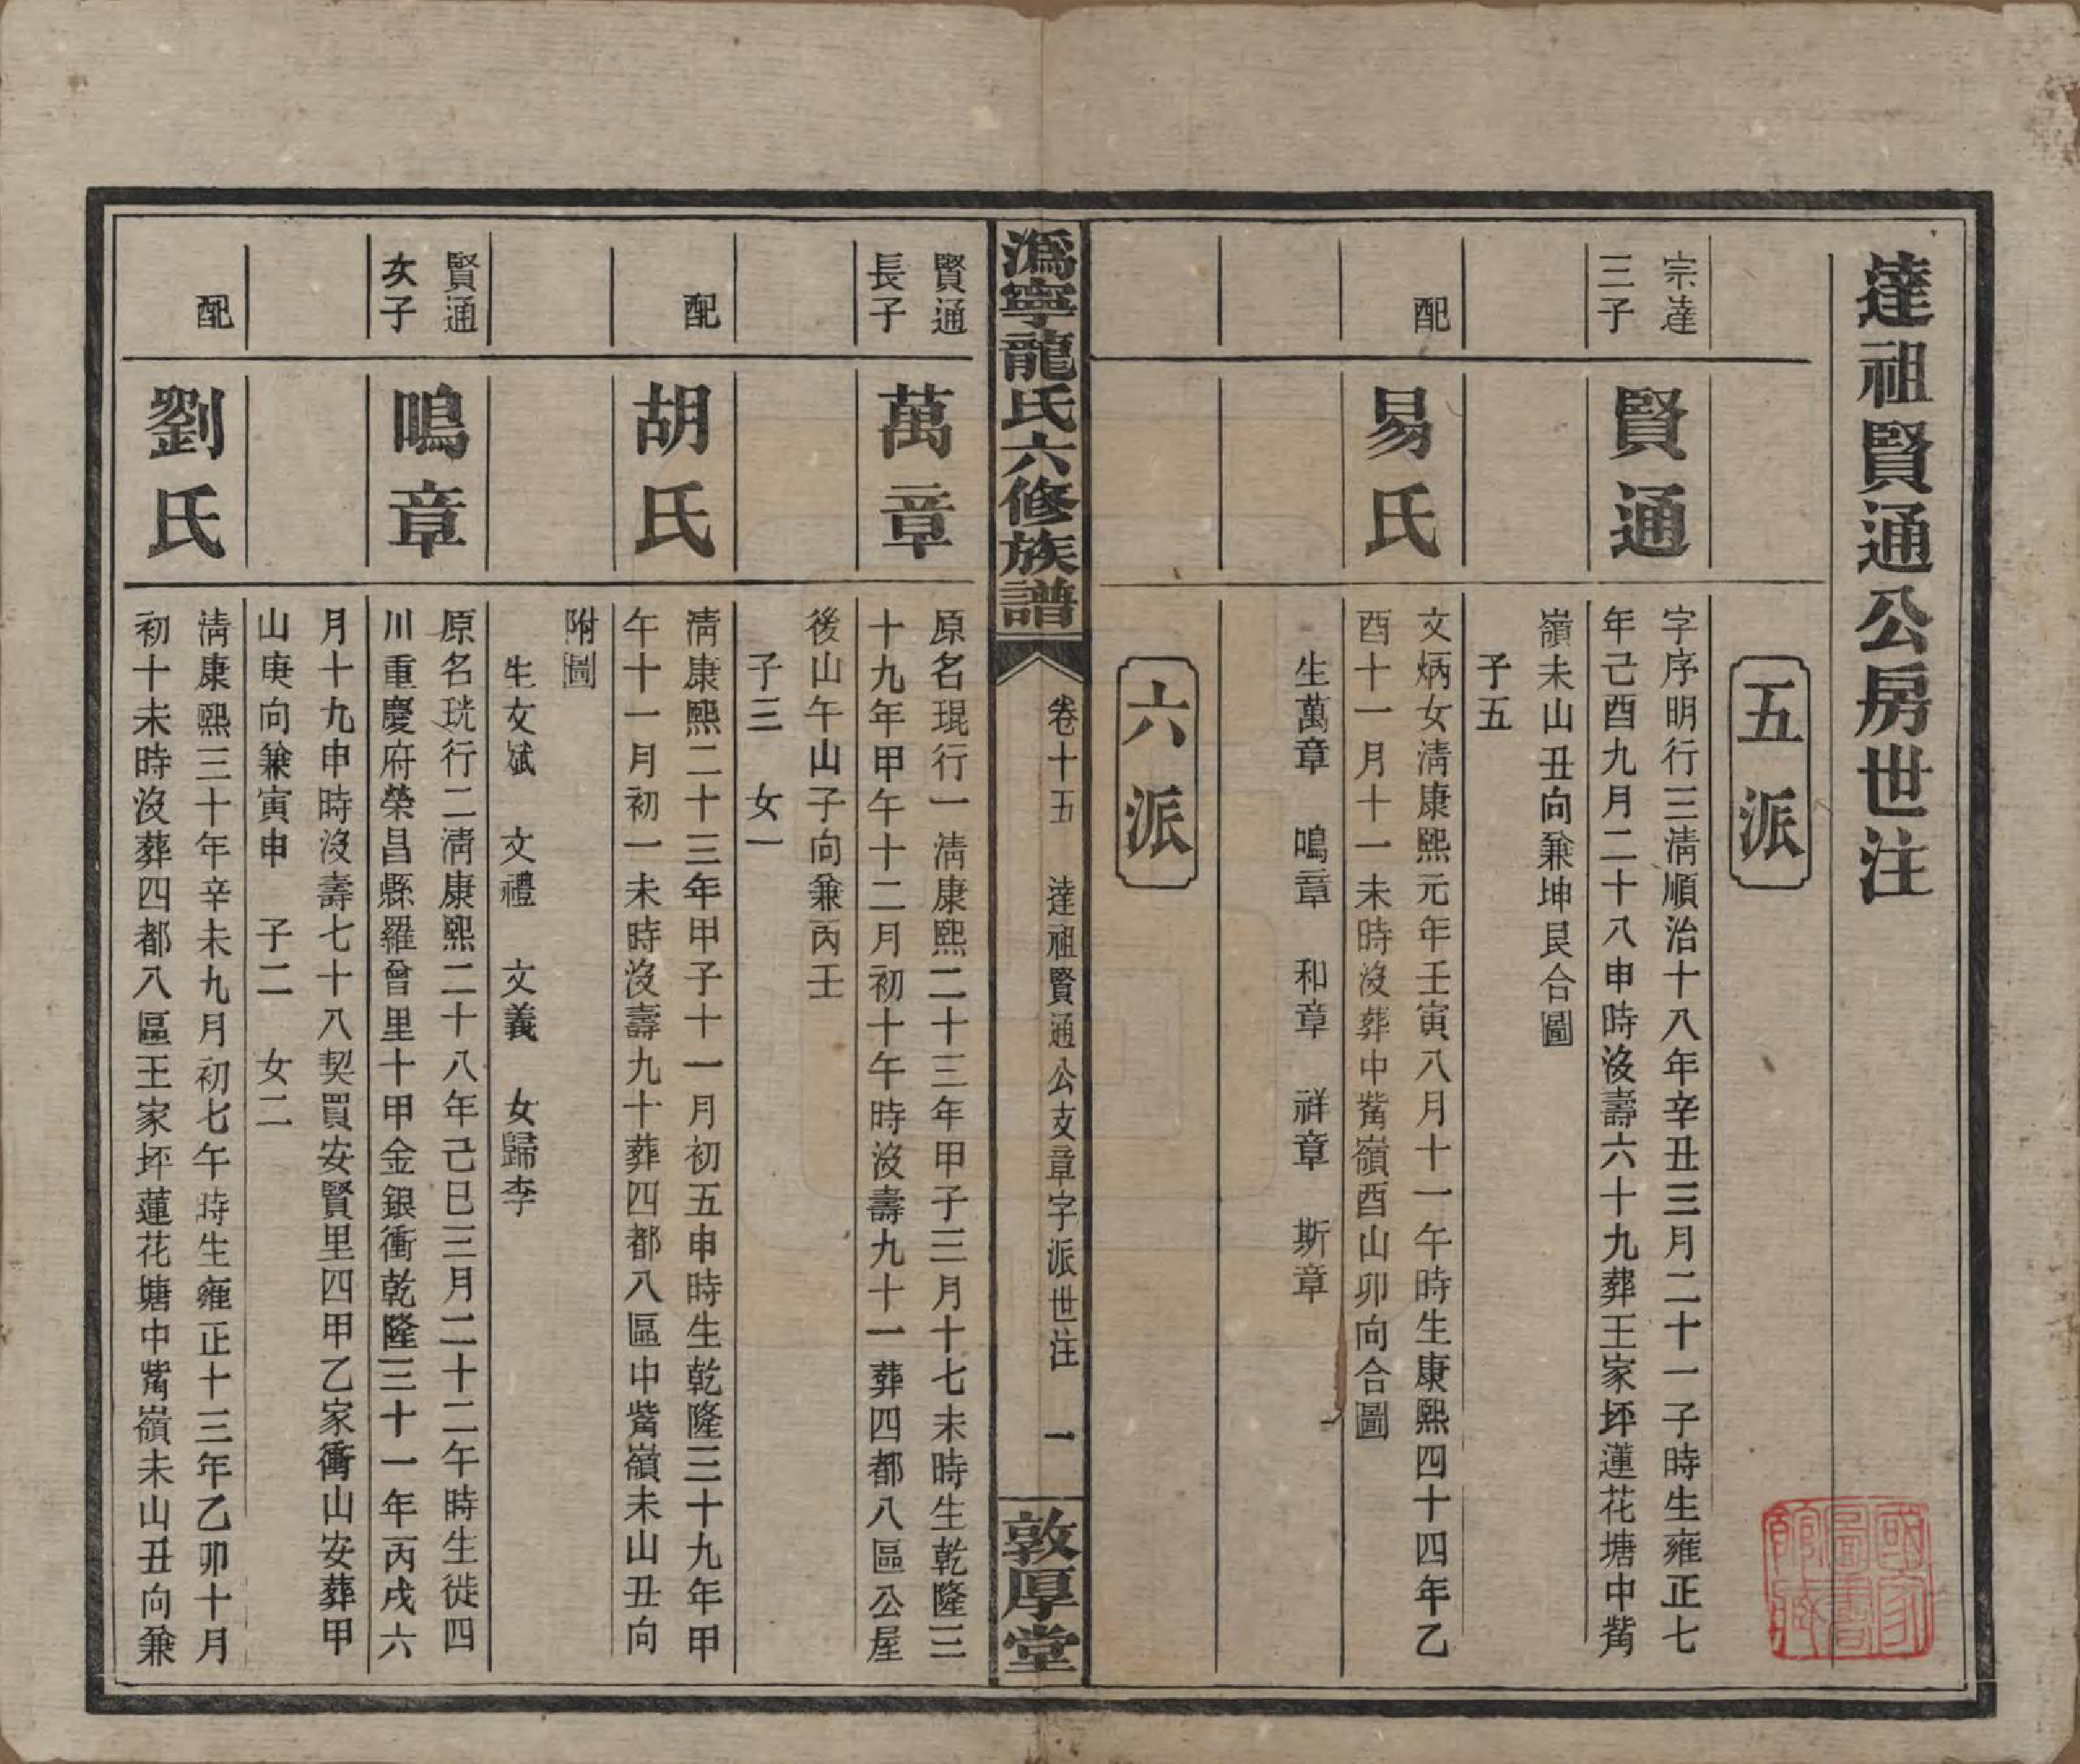 達祖賢通公房世注
五派
宗達
三子
賢通
字序明行三淸順治十八年辛丑三月二十一子時生雍正七
年己酉九月二十八申時沒壽六十九葬王家坪蓮花塘中觜
嶺未山丑向兼坤艮合圖
子五
配
易氏
文炳女淸康熙元年壬寅八月十一午時生康熙四十四年乙
酉十一月十一未時沒葬中觜嶺酉山卯向合圖
生萬章 鳴章 和章 祥章 斯章
六派
潙寧龍氏六修族譜
卷十五 達祖賢通公支章字派世注 一
敦厚堂
賢通
長子
萬章
原名琨行一淸康熙二十三年甲子三月十七未時生乾隆三
十九年甲午十二月初十午時沒壽九十一葬四都八區公屋
後山午山子向兼丙壬
子三 女一
配
胡氏
淸康熙二十三年甲子十一月初五申時生乾隆三十九年甲
午十一月初一未時沒壽九十葬四都八區中觜嶺未山丑向
附圖
生文斌 文禮 文義 女歸李
賢通
次子
鳴章
原名珖行二淸康熙二十八年己巳三月二十二午時生徙四
川重慶府榮昌縣羅曾里十甲金銀衝乾隆三十一年丙戌六
月十九申時沒壽七十八契買安賢里四甲乙家衝山安葬甲
山庚向兼寅申 子二 女二
配
劉氏
淸康熙三十年辛未九月初七午時生雍正十三年乙卯十月
初十未時沒葬四都八區王家坪蓮花塘中觜嶺未山丑向兼
國家
圖書
館藏